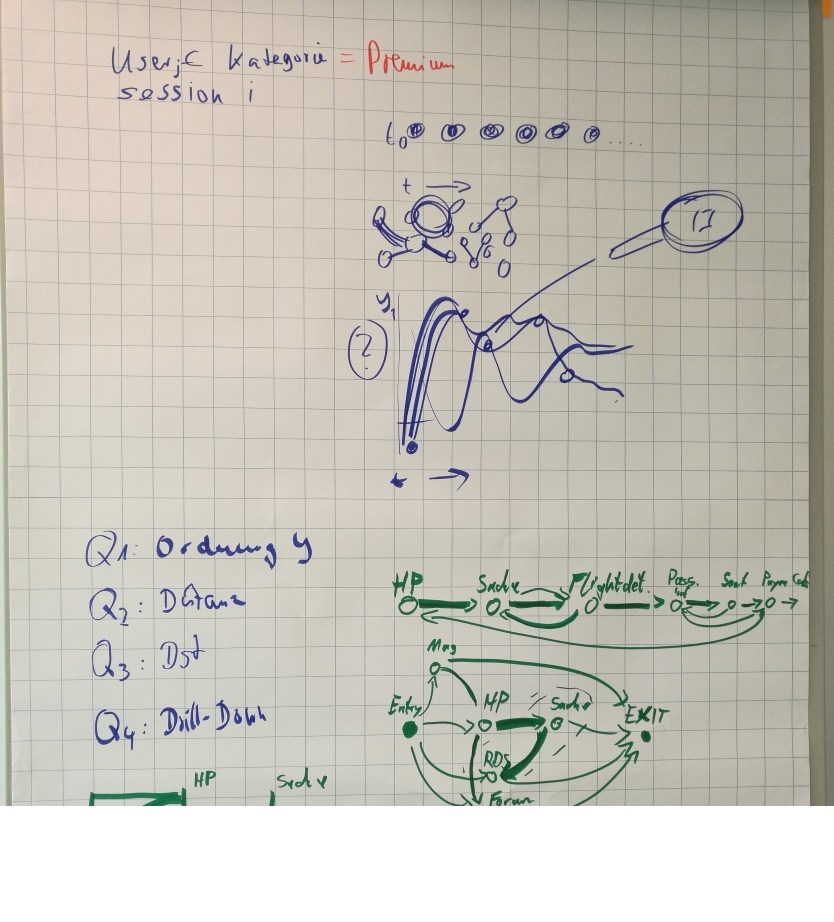 User, C Kategorie = Premium
session i
t0 ....
t
y1
?
t
Q1: Ordnung y
Q2: Distanz
Q3: Dst
Q4: Drill-Down
HP Suche Flightdet. Pass. Inf Seat Paym Conf
Mag
Entry HP Suche EXIT
RDS
Forum
HP Suche